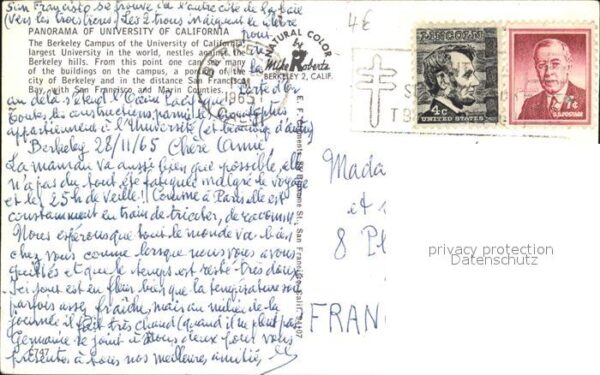 San Francisco se trouve de l'autre côté de la baie
(vers les trois
Les 2 trous indiquent le célèbre
pont
Porte d'Or
PANORAMA OF UNIVERSITY OF CALIFORNIA
The Berkeley Campus of the University of California
largest University in the world, nestles against the
Berkeley hills. From this point one can see many
of the buildings on the campus, a portion of the
city of Berkeley and in the distance San Francisco
Bay, with San Francisco and Marin Counties.
au delà s'étend l'Océan Pacifique
toutes les constructions parmi le
appartiennent à l'Université (et beaucoup d'autres)
Berkeley 28/11/65 Chère Cannie,
La maman va aussi bien que possible, elle
n'a pas du tout été fatiguée malgré le voyage
et les 25h de veille! Comme à Paris elle est
constamment en train de tricoter, de
Nous espérons que tout le monde va bien
chez vous comme lorsque nous vous avons
quittés et que le temps est resté très doux
Ici tout est en fleurs bien que la température soit
parfois assez fraîche, mais au milieu de la
journée il fait très chaud (quand il ne pleut pas
Germaine se joint à nous deux pour vous
présenter à tous nos meilleures amitiés
E797
NATURAL COLOR
by
Mike Roberts
BERKELEY 2, CALIF.
1965
4€
LINCOLN
4c
UNITED STATES
7c
U.S. POSTAGE
TB
San Francisco, Calif. 94107
Mada
et
8 Pl
FRAN
privacy protection
Datenschutz